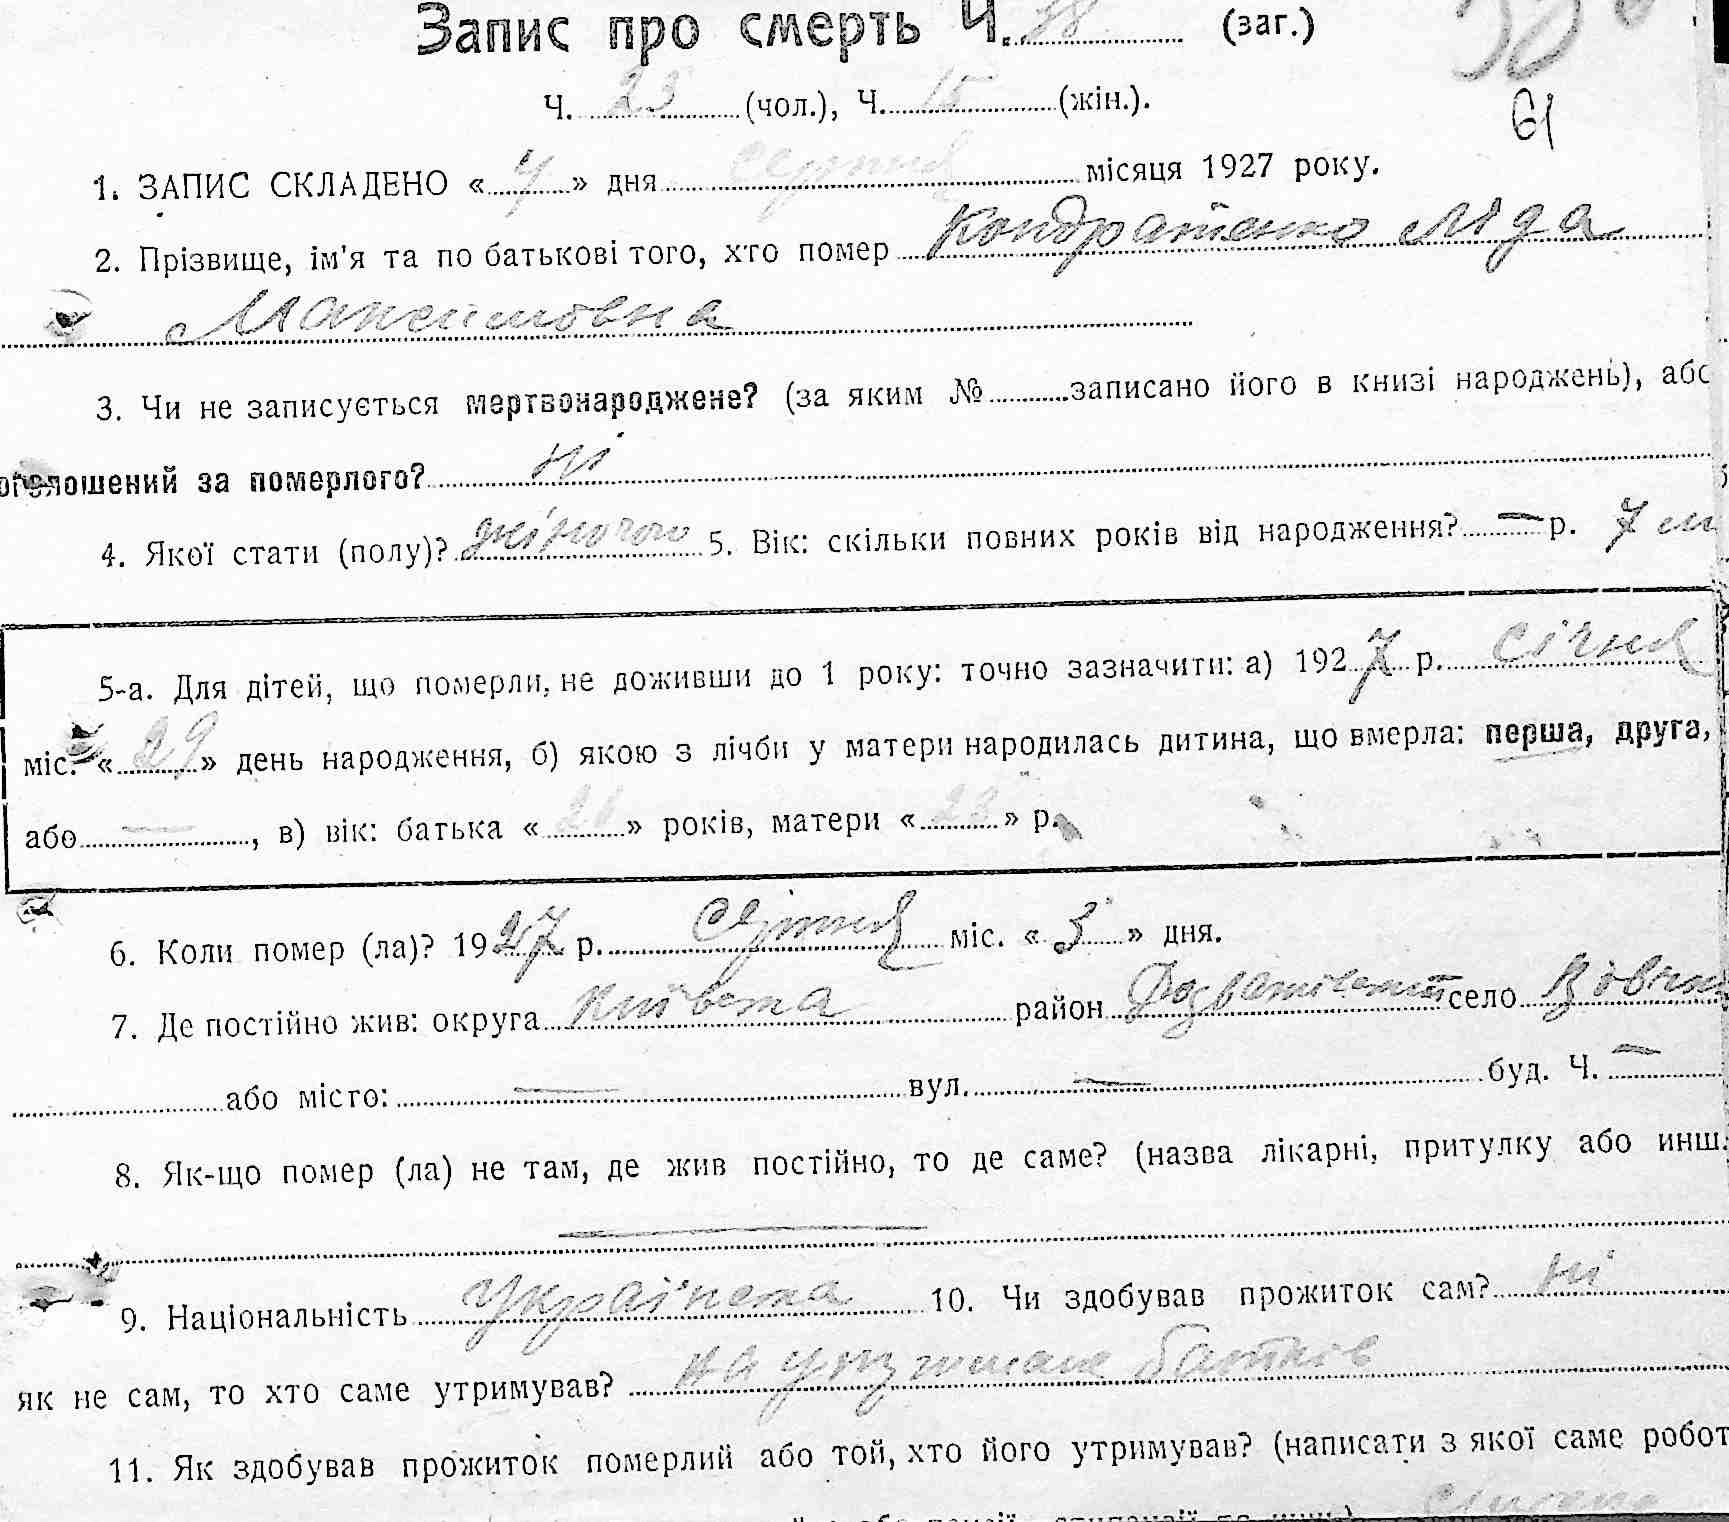 Запис про смерть Ч. 38 (заг.)
Ч. 23 (чол.), Ч. 15 (жін.).
61
1. ЗАПИС СКЛАДЕНО «4» дня серпня місяця 1927 року.
2. Прізвище, ім'я та по батькові того, хто помер Кондратенко Ліда
Максимовна
3. Чи не записується мертвонароджене? (за яким № записано його в книзі народжень), або
оголошений за померлого? ні
4. Якої стати (полу)? жіночого 5. Вік: скільки повних років від народження? — р. 7 м
5-а. Для дітей, що померли, не доживши до 1 року: точно зазначити: а) 1927 р. січня
міс. «29» день народження, б) якою з лічби у матери народилась дитина, що вмерла: перша, друга,
або —, в) вік: батька «26» років, матери «23» р.
6. Коли помер (ла)? 1927 р. серпня міс. «3» дня.
7. Де постійно жив: округа Київська район село
або місто: — вул. — буд. Ч. —
8. Як-що помер (ла) не там, де жив постійно, то де саме? (назва лікарні, притулку або инш.
9. Національність Українська 10. Чи здобував прожиток сам? ні
як не сам, то хто саме утримував? на батьків
11. Як здобував прожиток померлий або той, хто його утримував? (написати з якої саме робот